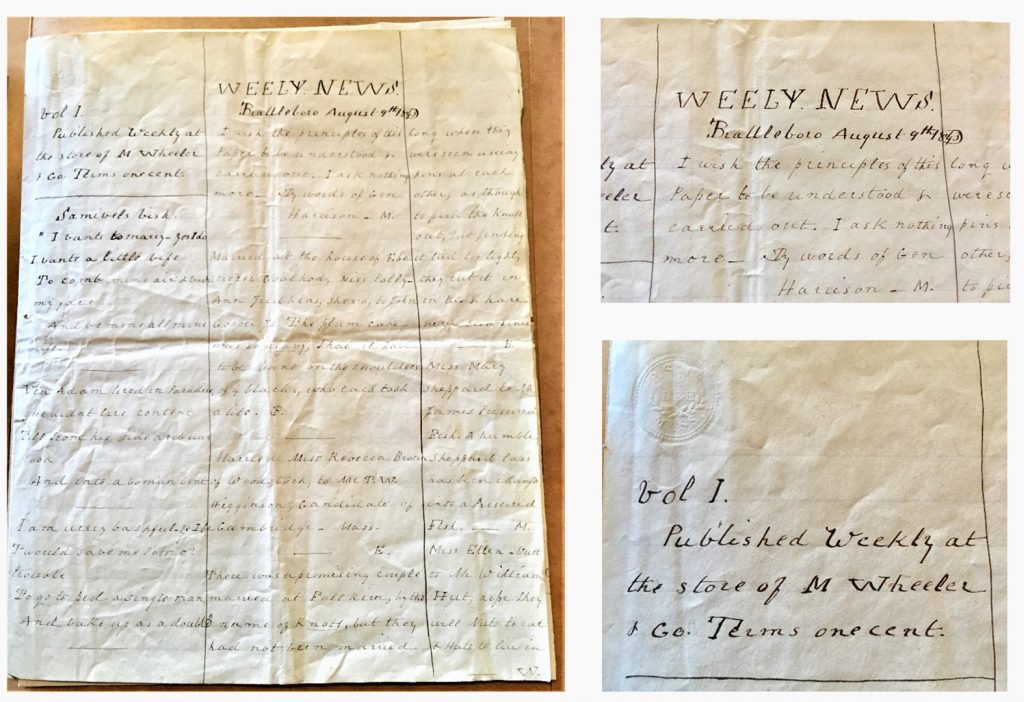 WEELY NEWS.
Brattleboro August 9th 1843
Vol I.
Published Weekly at
the store of M Wheeler
& Co. Terms one cent.
Samivels Vish.
" I vants to marry- yes I do
I vants a little vife
To comb mine air & vash
my face
And be mine all mine
Ven Adam lived in Paradise
he didnt live content
Till from his side a
And into a voman vent
I am werry bashful
T'would save me lots of
trouble
To go to bed a single man
And vake up as a double
I wish the principles of this
Paper to be understood &
carried out. I ask nothing
more - By words of Gen
Harrison - M.
Married at the house of
Miss Polly
Ann Jenkins, She's o, to John
Cooper Jr. The plum cake
was so heavy, that it had
to be bune on the shoulders
of 4 blacks, who each took
a bite. B.
Married Miss Rebecca Brown
of Woodstock, to Mr T.W.
Higginson, Candidate of
Cambridge - Mass.
E.
There was a promising couple
married at by the
name of Knott, but they
had not been married
long when they
were seen using
pins at each
other, as though
to pick the knott
out, but finding
it tied too tightly
they cut it in
two & have
never been since
B.
Miss Mary
Sheppard to Mr
James Preserved
Fish. A humble
Sheppard lass
has been changed
into a Preserved
Fish. - M.
Miss Ellen Nutt
to Mr William
Hut, hope they
will Nuts to eat
& Huts to live in
N.
WEELY NEWS.
Brattleboro August 9th 1843
ly at
I wish the principles of this
long w
eeler
Paper to be understood &
were se
t.
carried out. I ask nothing
pins
more - By words of Gen
other,
Harrison - M.
to pic
Vol I.
Published Weekly at
the store of M Wheeler
& Co. Terms one cent.